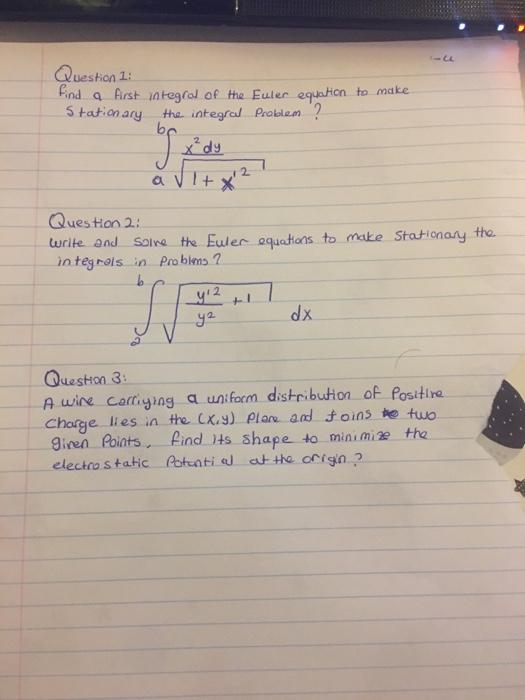 Question 1:
find a first integral of the Euler equation to make
Stationary the integral Problem ?
b
∫ x² dy
a √1 + x'²
Question 2:
write and solve the Euler equations to make stationary the
integrals in problems ?
b
∫ √ y'²/y² + 1 dx
a
Question 3:
A wire carriying a uniform distribution of Positive
charge lies in the (x,y) Plane and Joins two
given Points. find its shape to minimize the
electrostatic Potential at the origin ?